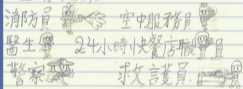 消防員 空中服務員
醫生 24小時快餐店職員
警察 救護員